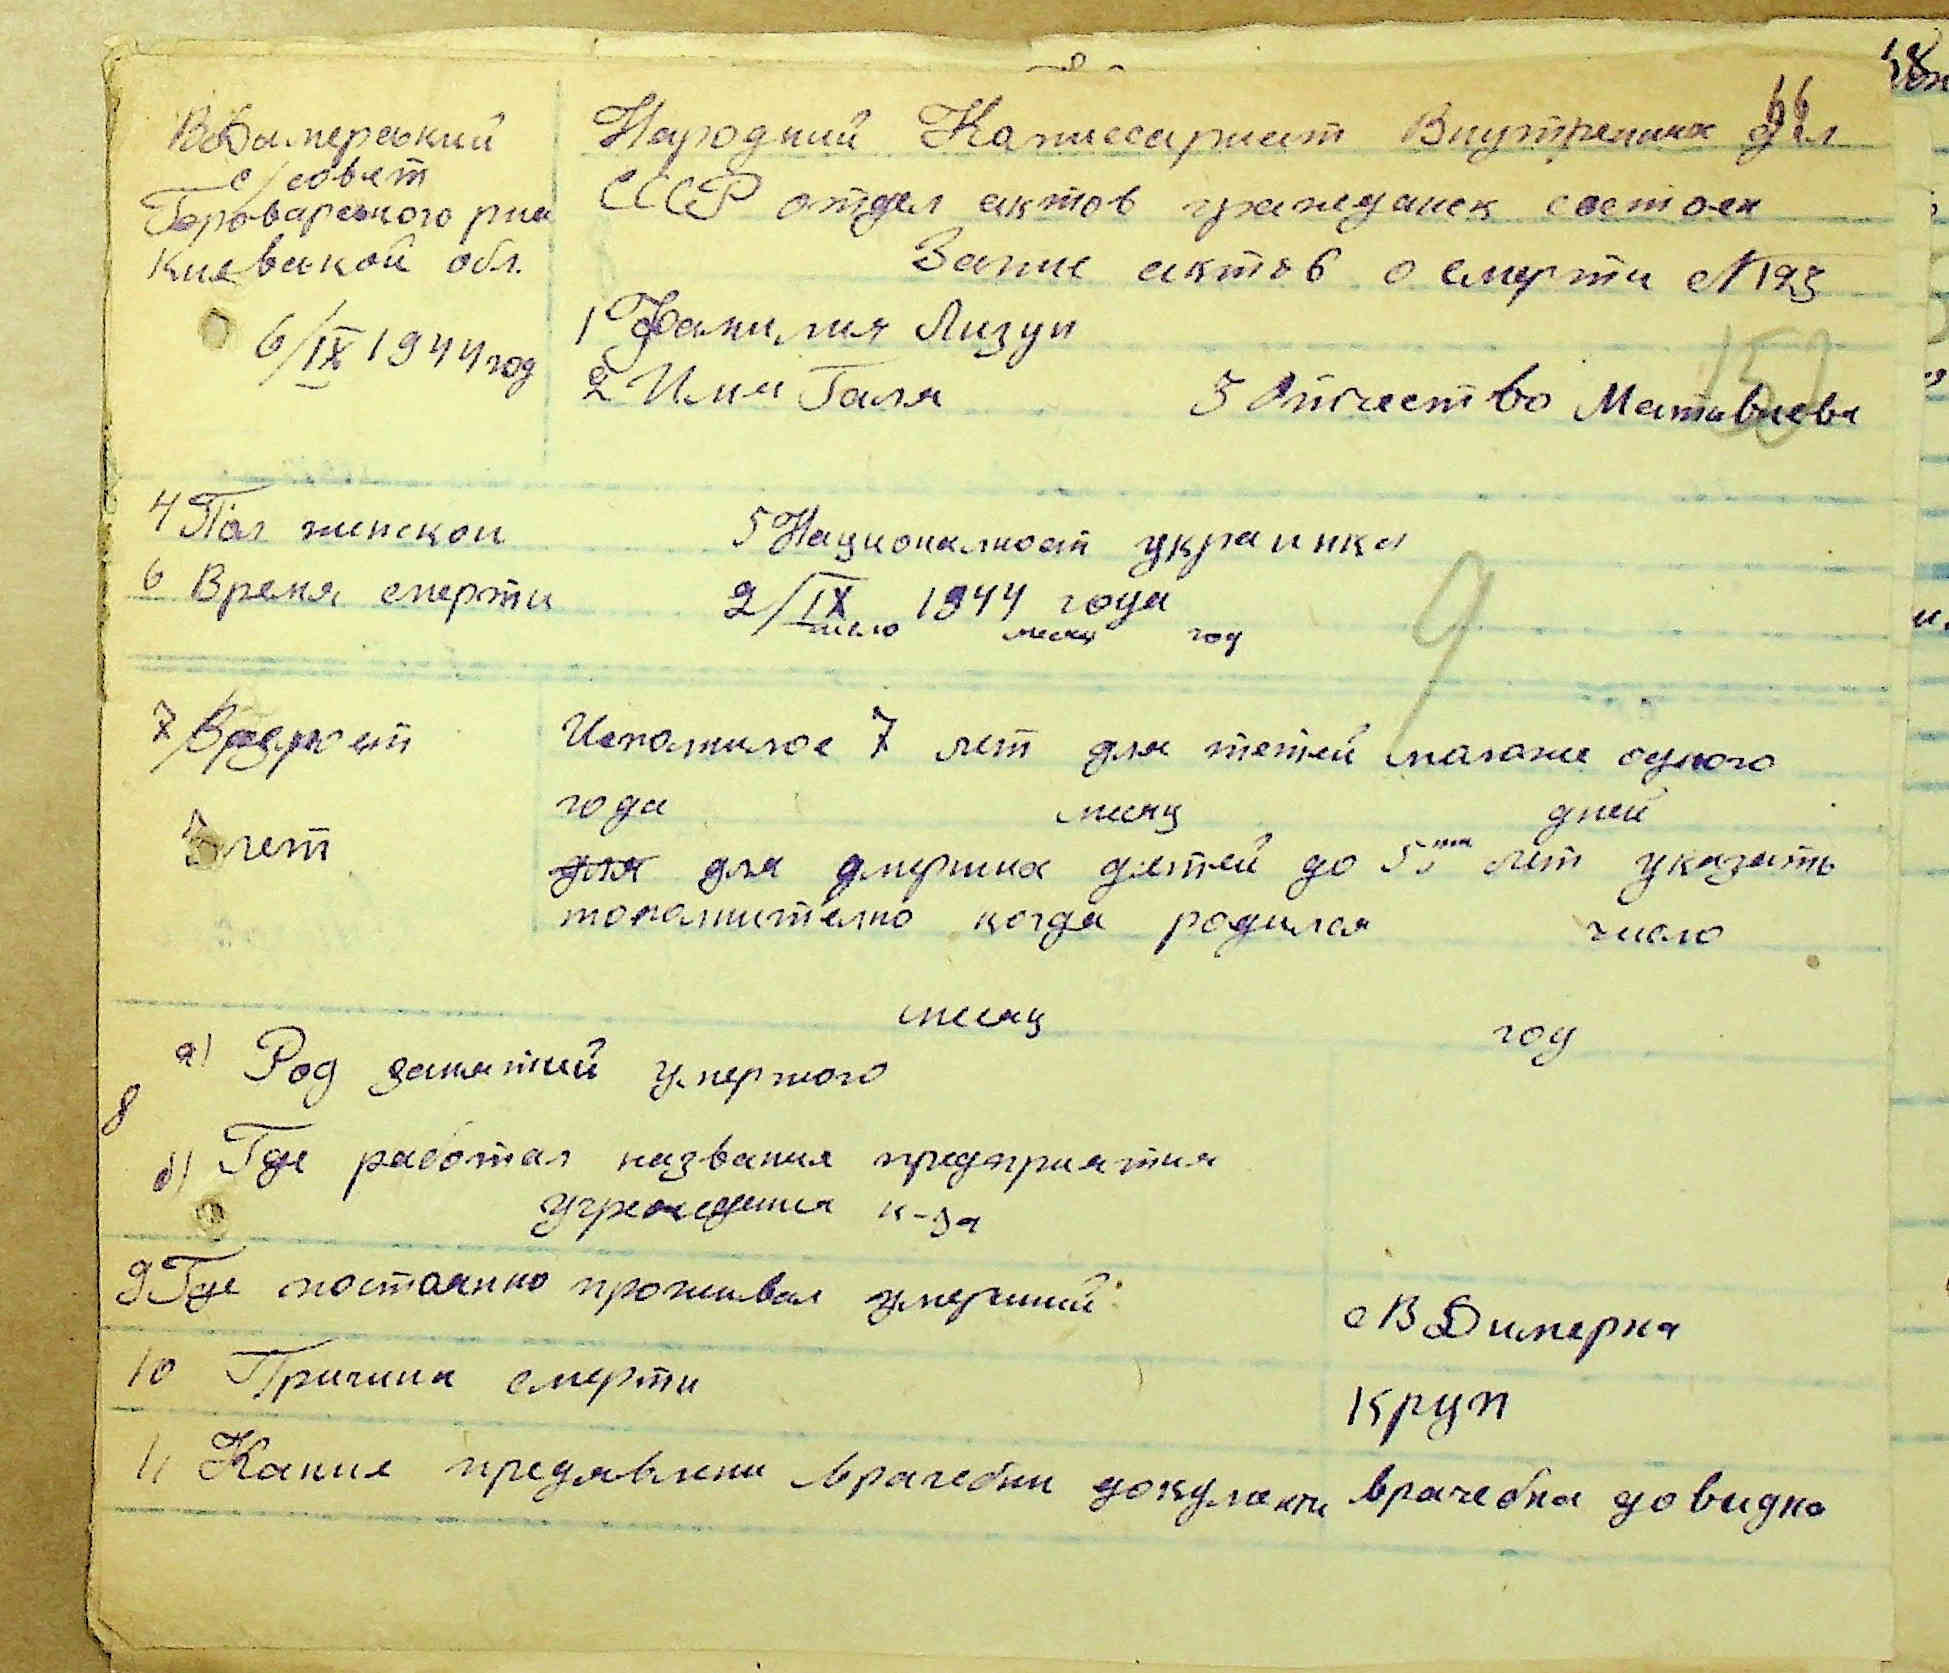 ВДимерський
с/совет
Броварського рна
Киевской обл.
6/IX 1944 год
66
Народний Комиссариат Внутрених Дел
СССР отдел актов гражданск состоен
Запис актов о смерти N 123
1 Фамилия Лизун
2 Имя Галя 3 Отчество Мативиевн
4 Пол женской 5 Националност украинка
6 Время смерти 2/IX 1944 года
число месяц год
9
7 Возрост Исполнилос 7 лет для тетей моложе одного
года месяц дней
7 лет
для для умерших детей до 5ти лет указать
тополнително когда родился число
месяц год
8
а) Род занятий умершого
б) Где работал названия предприятия
учреждения к-за
9 Где постоянно проживал умерший с В Димерка
10 Причина смерти Круп
11 Какие предявлени врачебни документи врачебна довидка